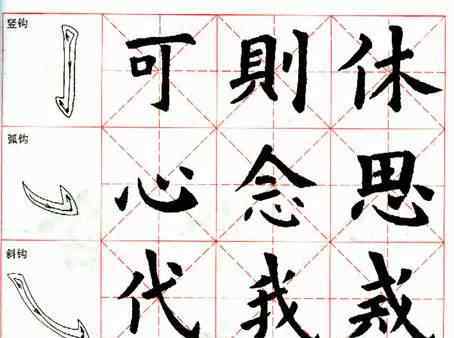 竖钩 可 則 休
弧钩 心 念 思
斜钩 代 我 戒